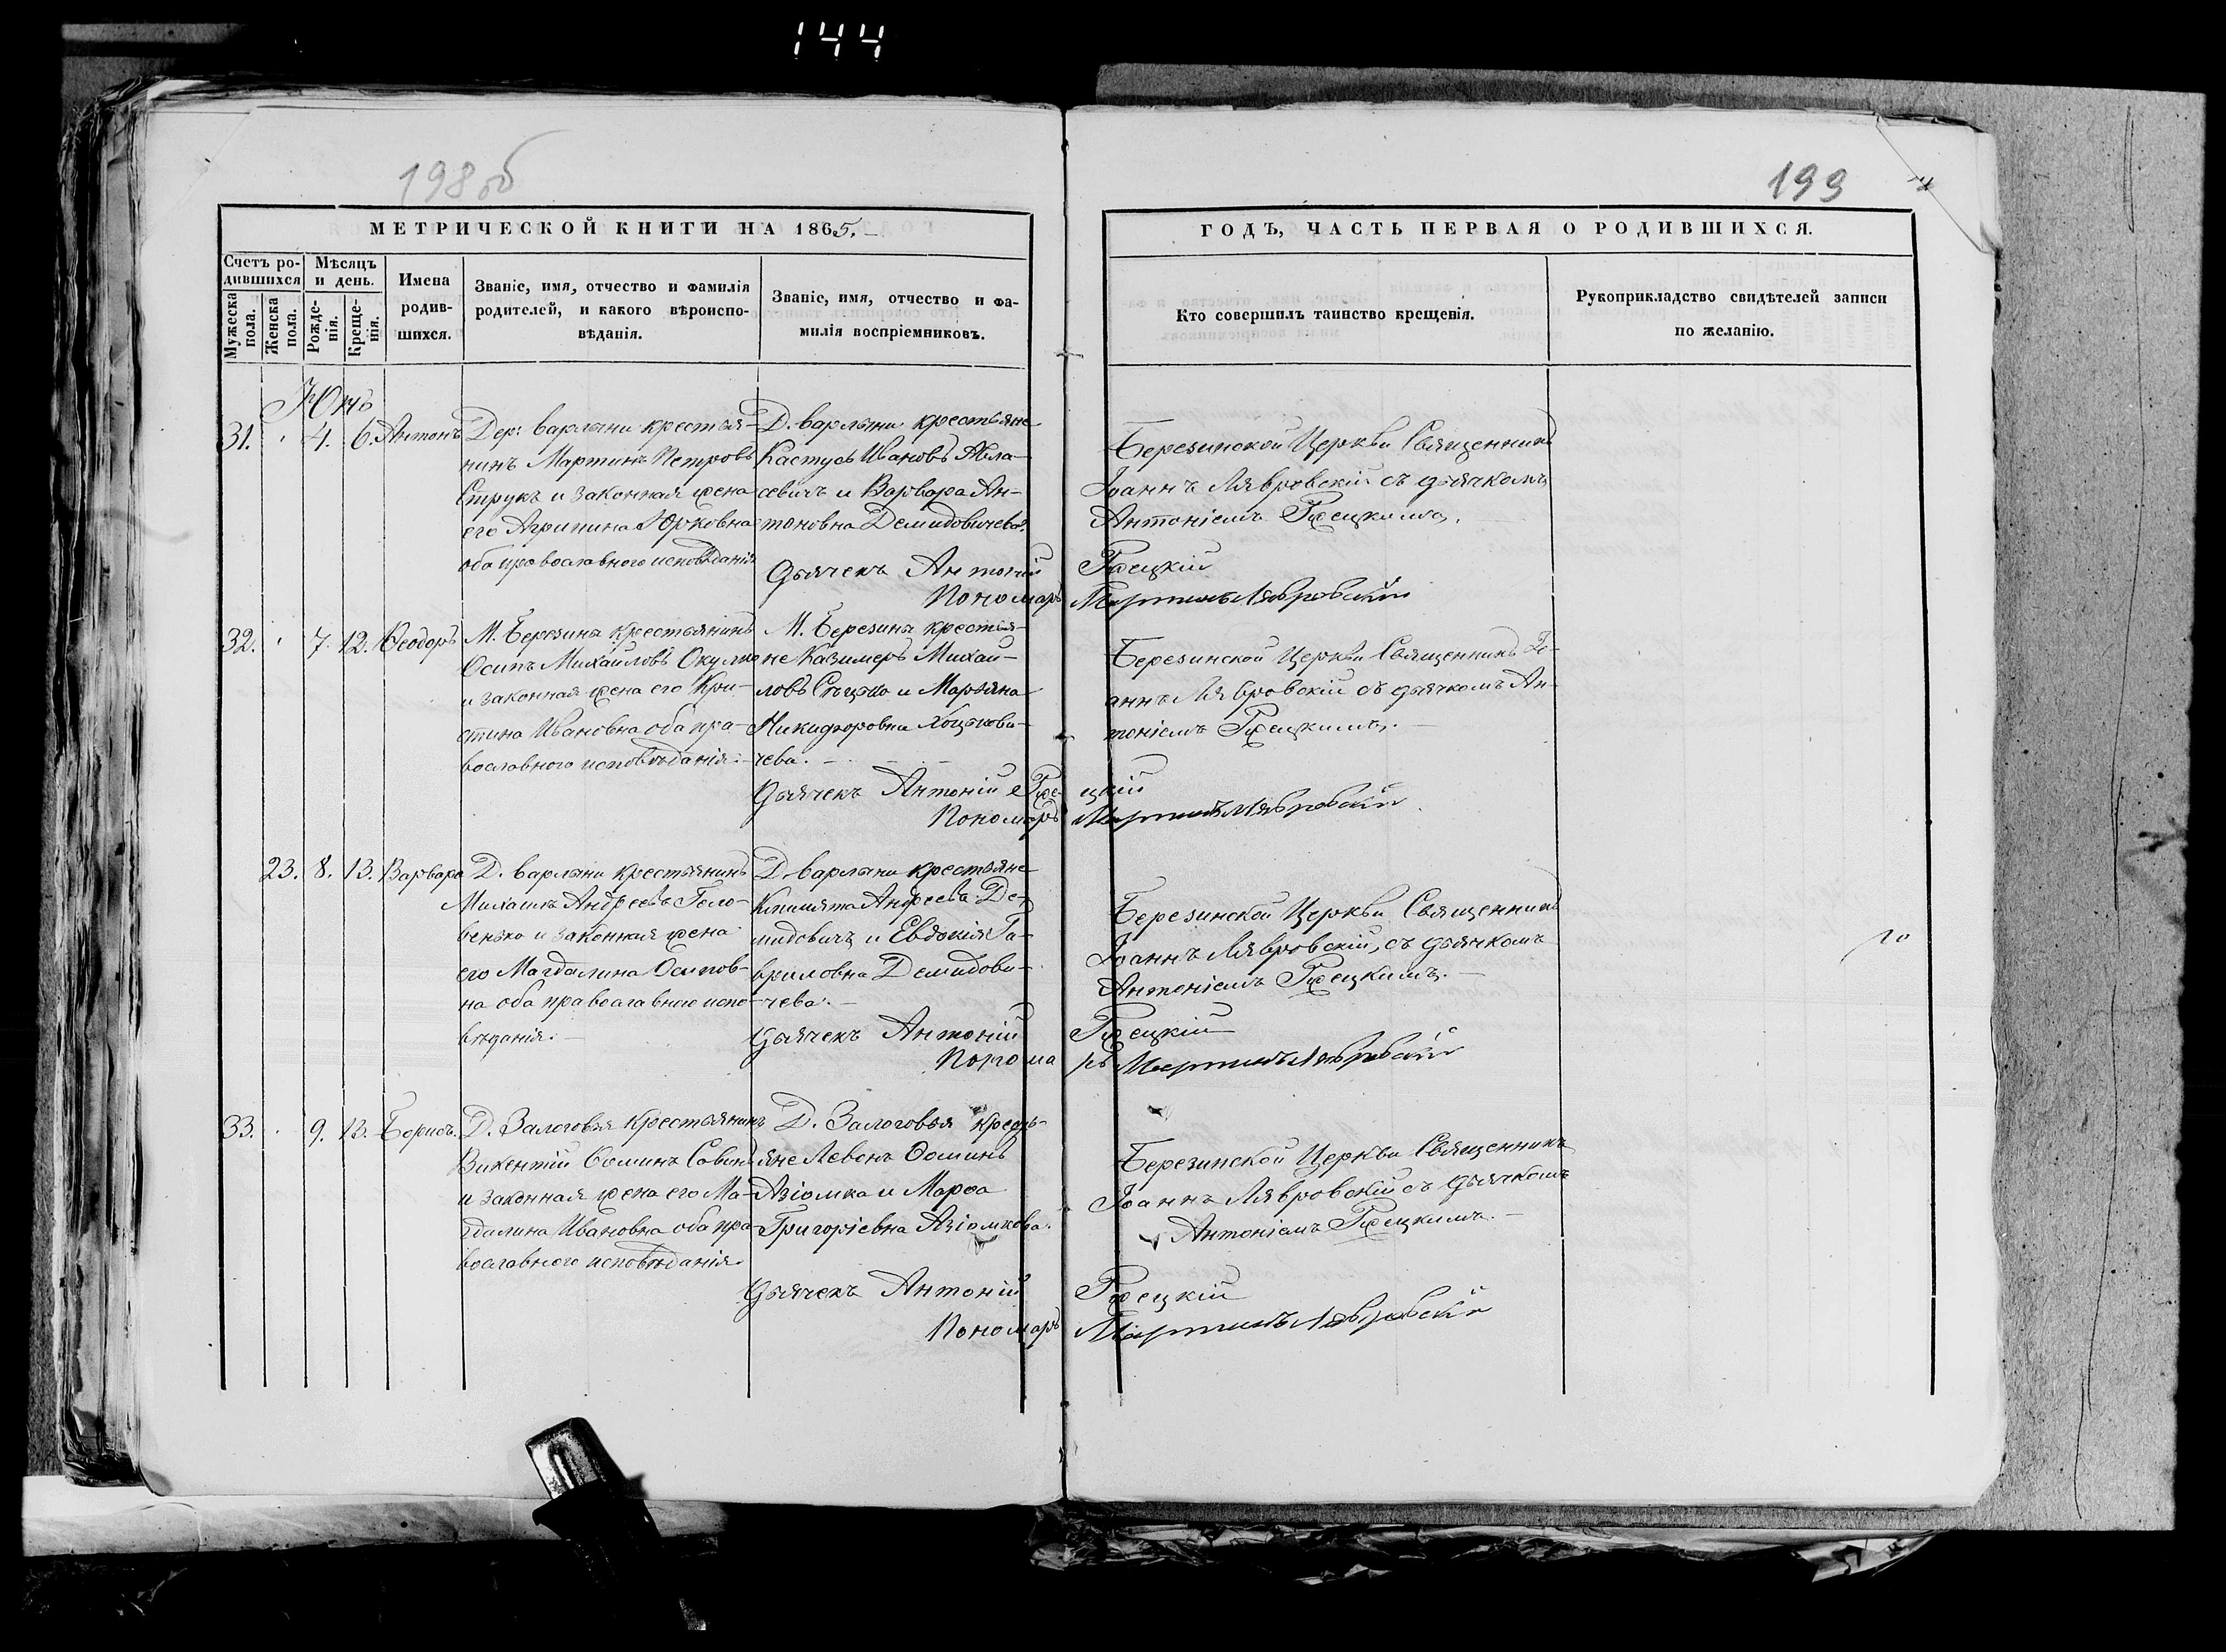 144
198 об
199
МЕТРИЧЕСКОЙ КНИГИ НА 1865.
ГОДЪ, ЧАСТЬ ПЕРВАЯ О РОДИВШИХСЯ.
Счетъ родившихся
Мужеска пола.
Женска пола.
Мѣсяцъ и день.
Рожденія.
Крещенія.
Имена родившихся.
Званіе, имя, отчество и фамилія
родителей, и какого вѣроисповѣданія.
Званіе, имя, отчество и фамилія воспріемниковъ.
Кто совершилъ таинство крещенія.
Рукоприкладство свидѣтелей записи
по желанію.
Юнь
31. 4. 6. Антонъ
Дер: Варлыни крестья-
нинъ Мартинъ Петровъ
Струкъ и законная жена
его Агрипина Юрковна
оба православного исповѣданія
Д. Варлыни крестьяне
Кастусь Ивановъ Авла-
севичъ и Варвара Ан-
тоновна Демидовичева.
Березинской Церкви Священникъ
Іоаннъ Лявровскій съ дьячкомъ
Антоніемъ
Дьячекъ Антоній
Пономарь Мартинъ Лявровскій
32. 7. 12. Ѳеодоръ
М. Березина крестьянинъ
Осипъ Михайловъ Окулко
и законная жена его Кри-
стина Ивановна оба пра-
вославного исповѣданія.
М. Березина крестья-
не Казимеръ Михай-
ловъ и Марьяна
Никифоровна Хоцькови-
чева.
Березинской Церкви Священникъ Іо-
аннъ Лявровскій съ дьячкомъ Ан-
тоніемъ
Дьячекъ Антоній
Пономарь Мартинъ Лявровскій
23. 8. 13. Варвара
Д. Варлыни крестьянинъ
Михашъ Андреевъ Голо-
венько и законная жена
его Магдалина Осипов-
на оба православного испо-
вѣданія.
Д. Варлыни крестьяне
Андреевъ Де-
мидовичъ и Евдокія Га-
вриловна Демидови-
чева.
Березинской Церкви Священникъ
Іоаннъ Лявровскій, съ дьячкомъ
Антоніемъ
Дьячекъ Антоній
Пономарь Мартинъ Лявровскій
33. 9. 13. Борисъ.
Д. Залоговья крестьянинъ
Викентій Ѳоминъ Савин
и законная жена его Ма-
гдалина Ивановна оба пра-
вославного исповѣданія.
Д. Залоговья кресть-
яне Левонъ Ѳоминъ
Азіомка и Марѳа
Григоріевна Азіомкова.
Березинской Церкви Священникъ
Іоаннъ Лявровскій съ дьячкомъ
Антоніемъ
Дьячекъ Антоній
Пономарь Мартинъ Лявровскій